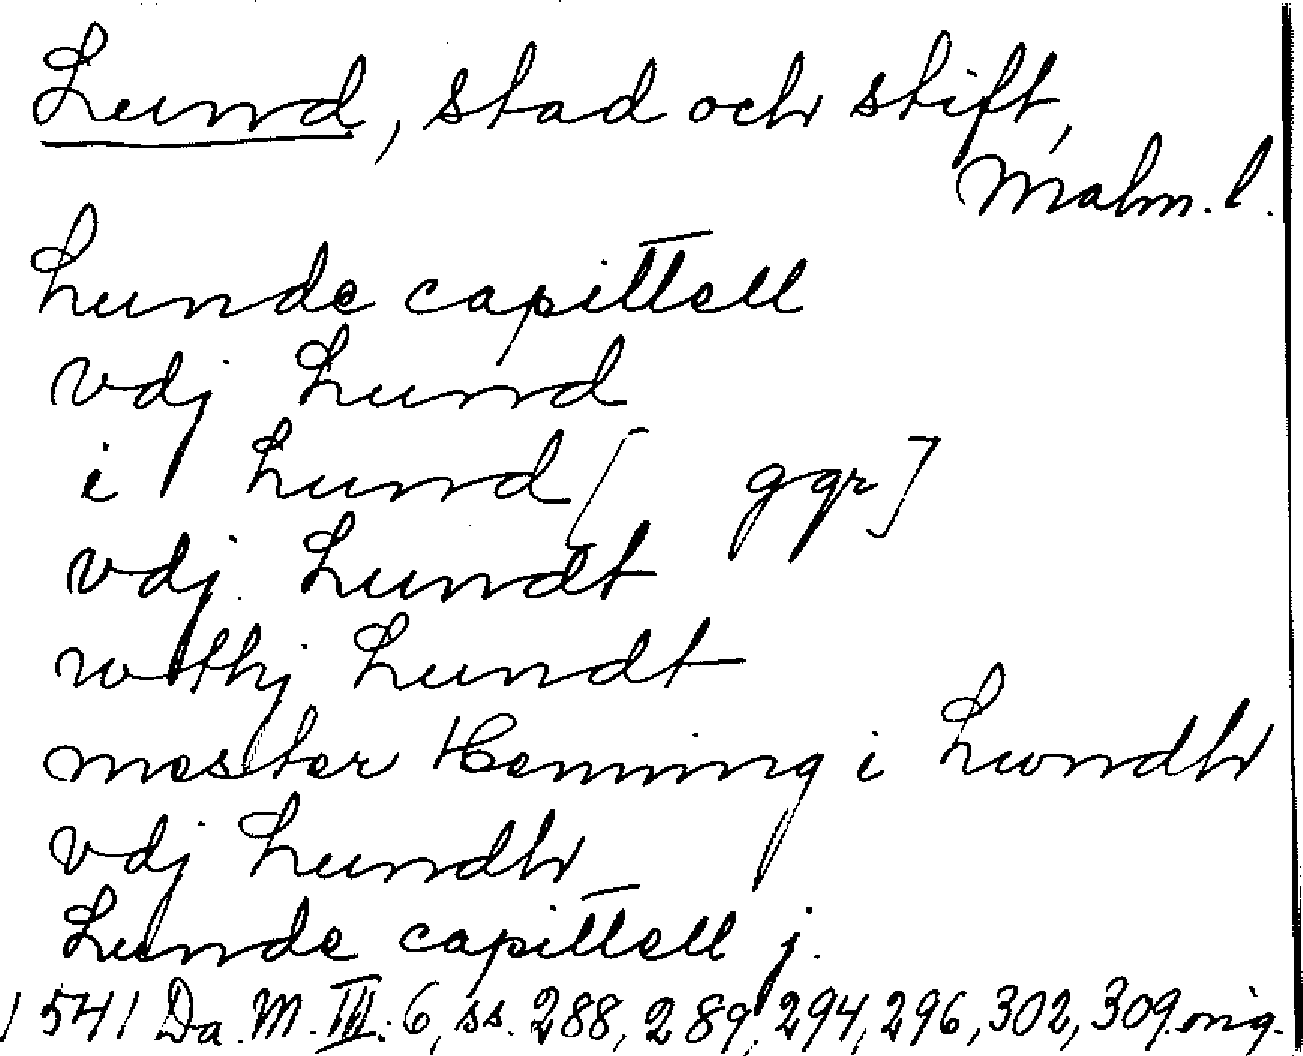 Lund, stad och stift,
Malm. l.
Lunde capittell
vdj Lund
i Lund [ ggr]
vdj Lundt
wthj Lundt
mester Henning i Lwndh
vdj Lundh
Lunde capittell j.
1541 Da. M. III. 6, ss. 288, 289, 294, 296, 302, 309. orig.